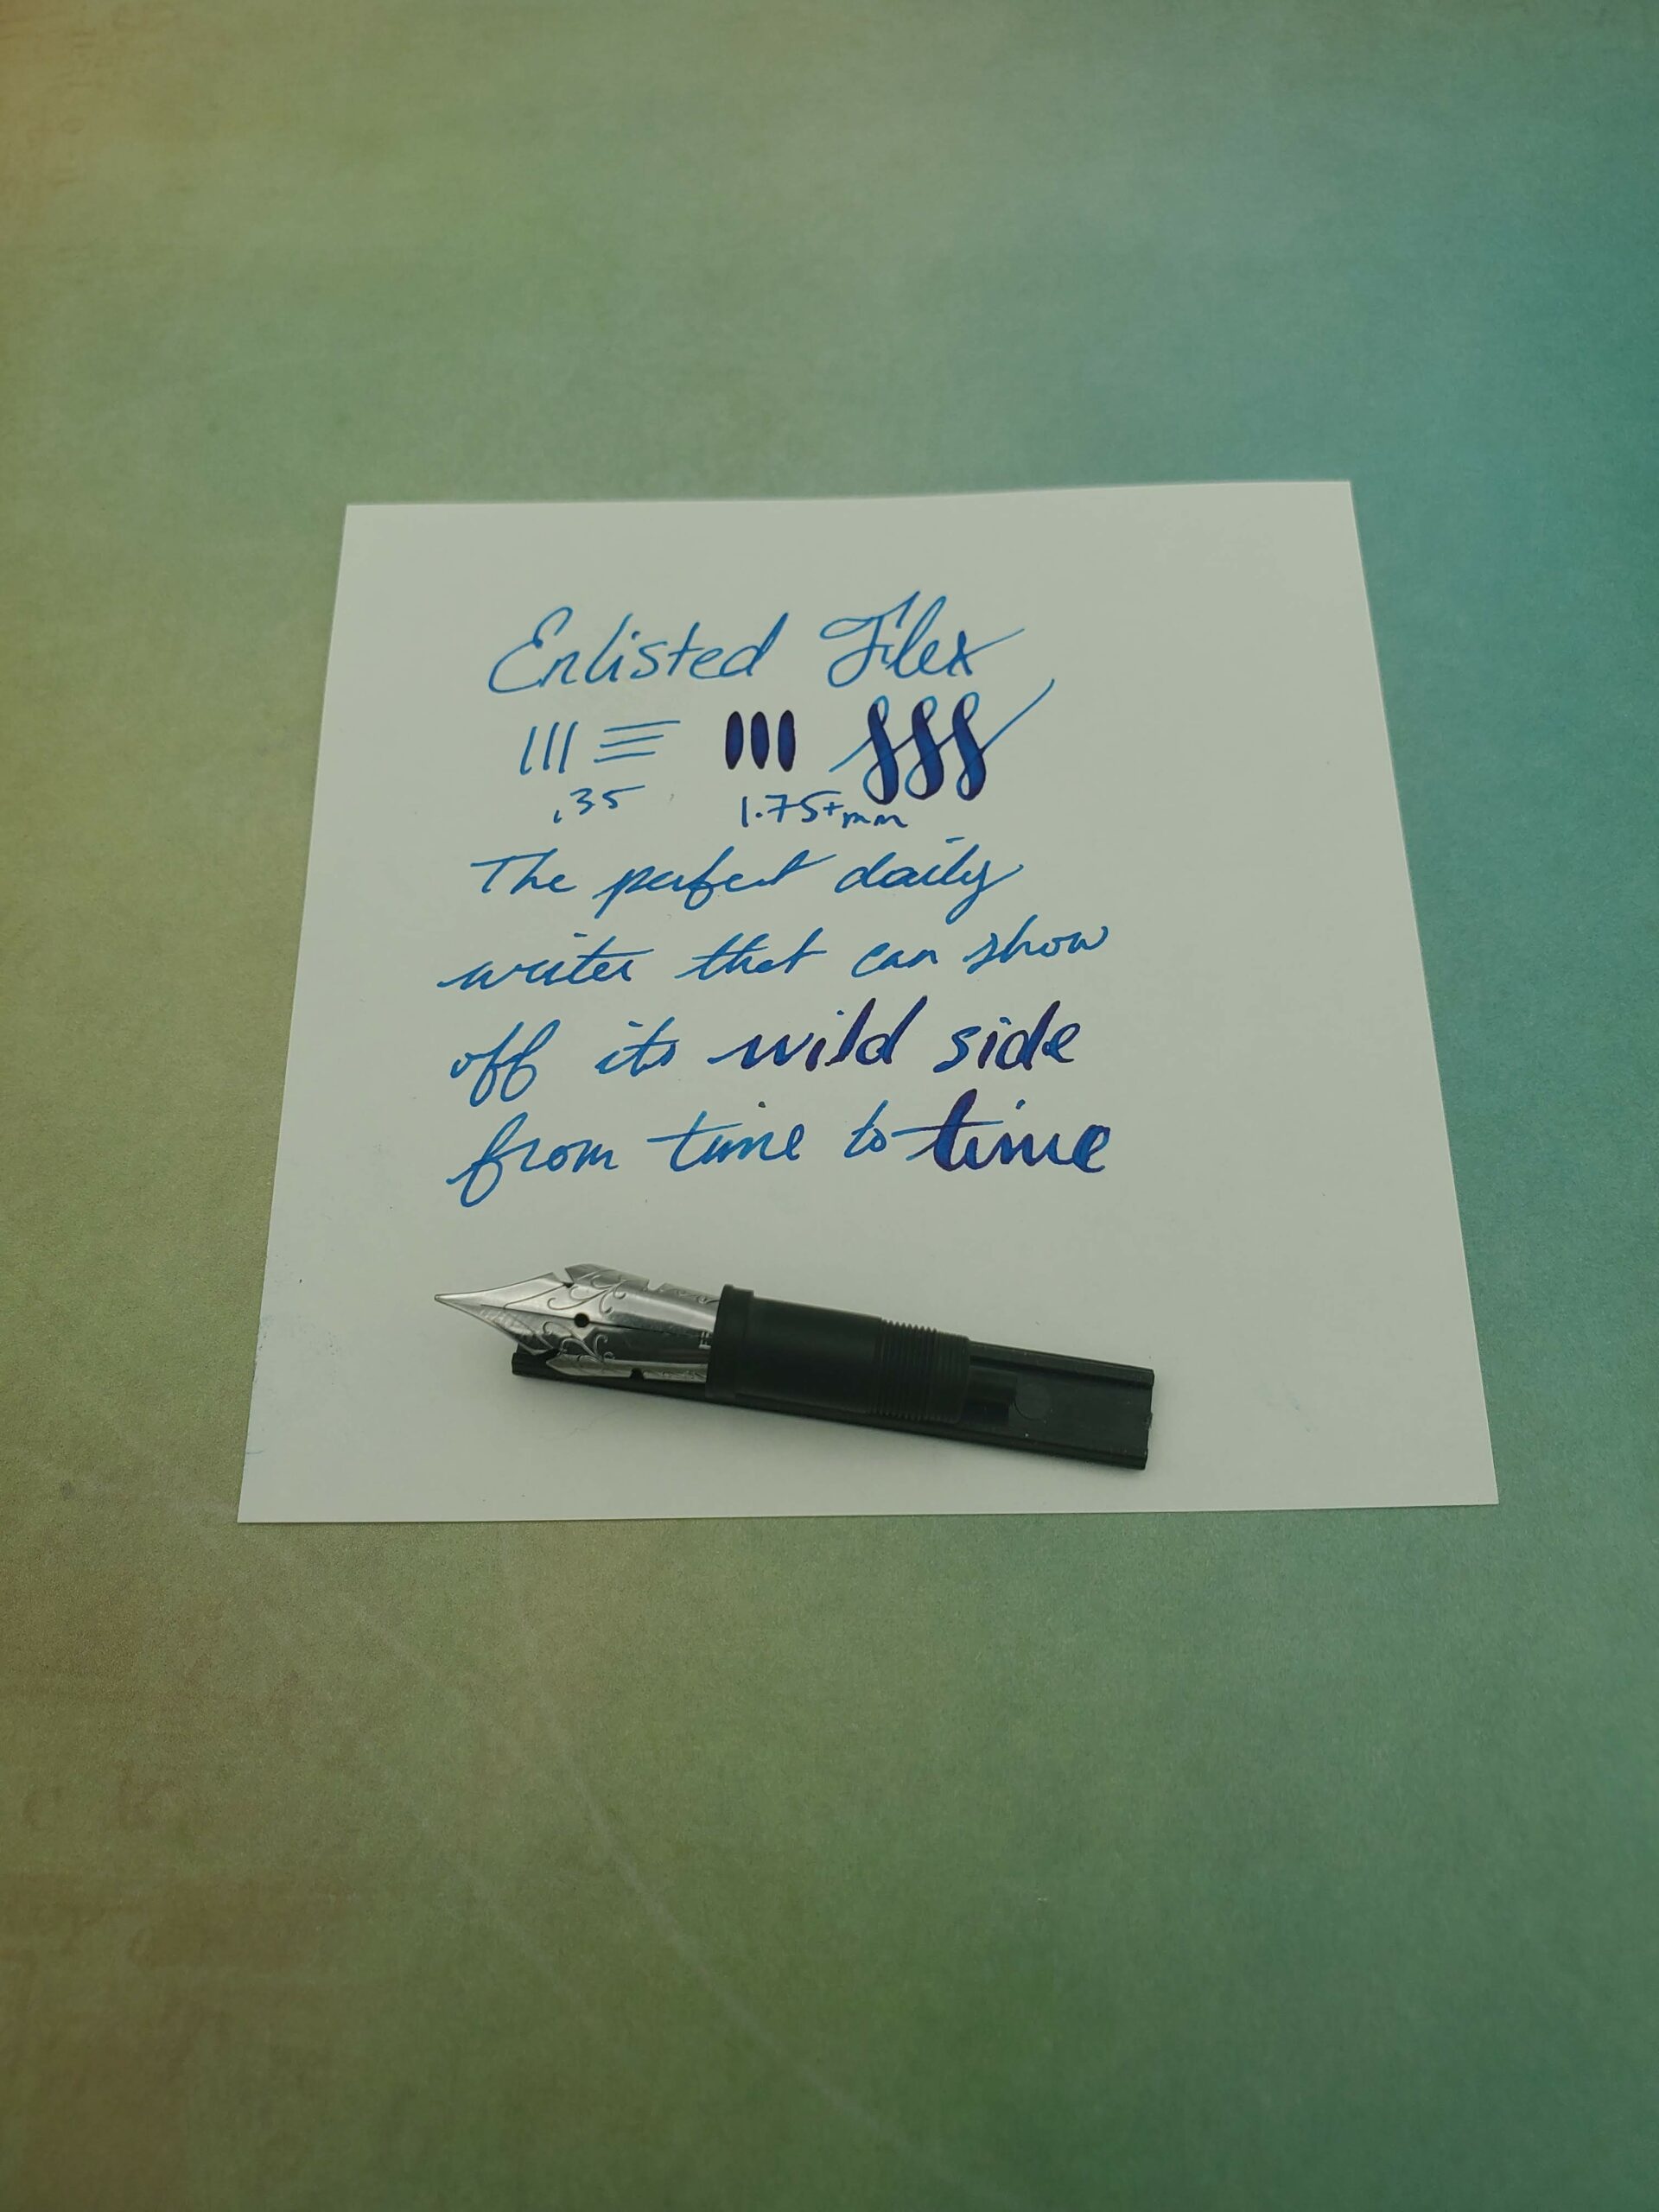 Enlisted Flex
.35 1.75+mm
The perfect daily
writer that can show
off its wild side
from time to time